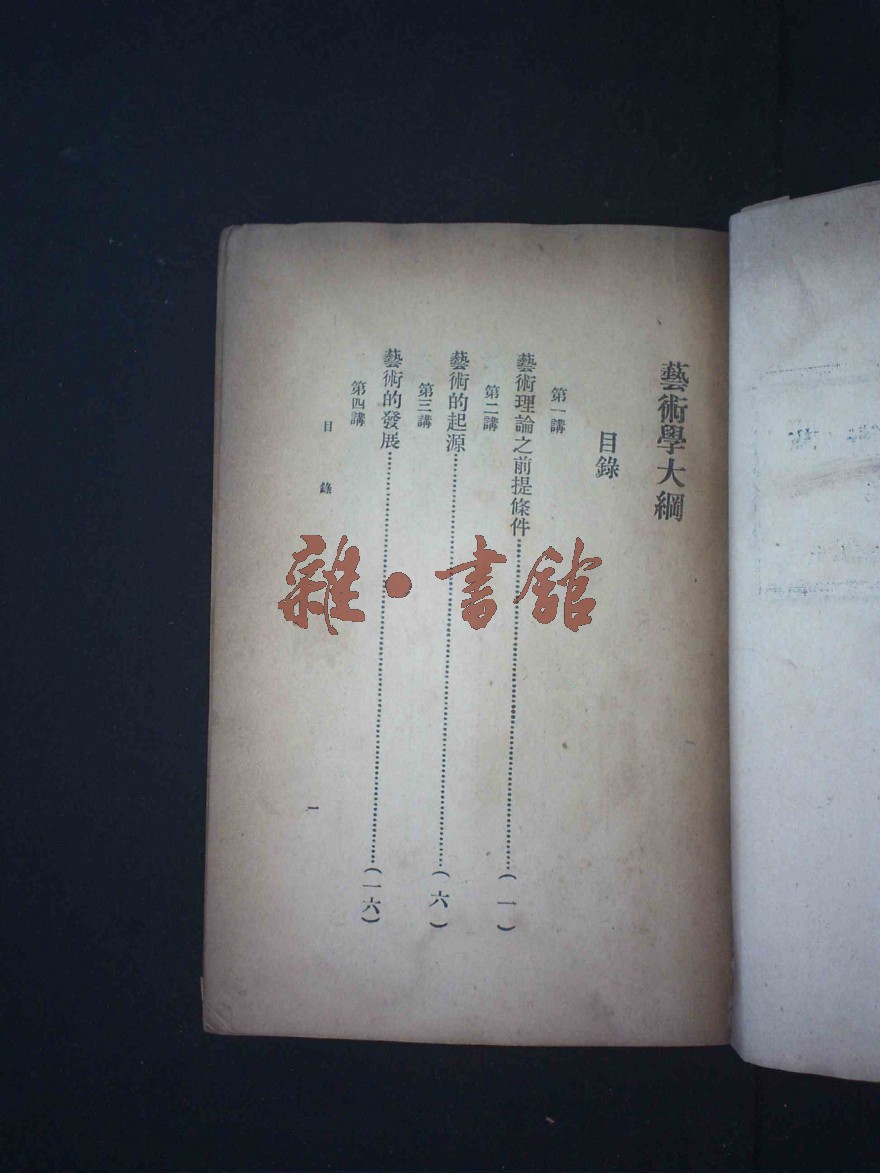 藝術學大綱
目錄
第一講
藝術理論之前提條件………(一)
第二講
藝術的起源………(六)
第三講
藝術的發展………(一六)
第四講
目錄
一
雜·書館